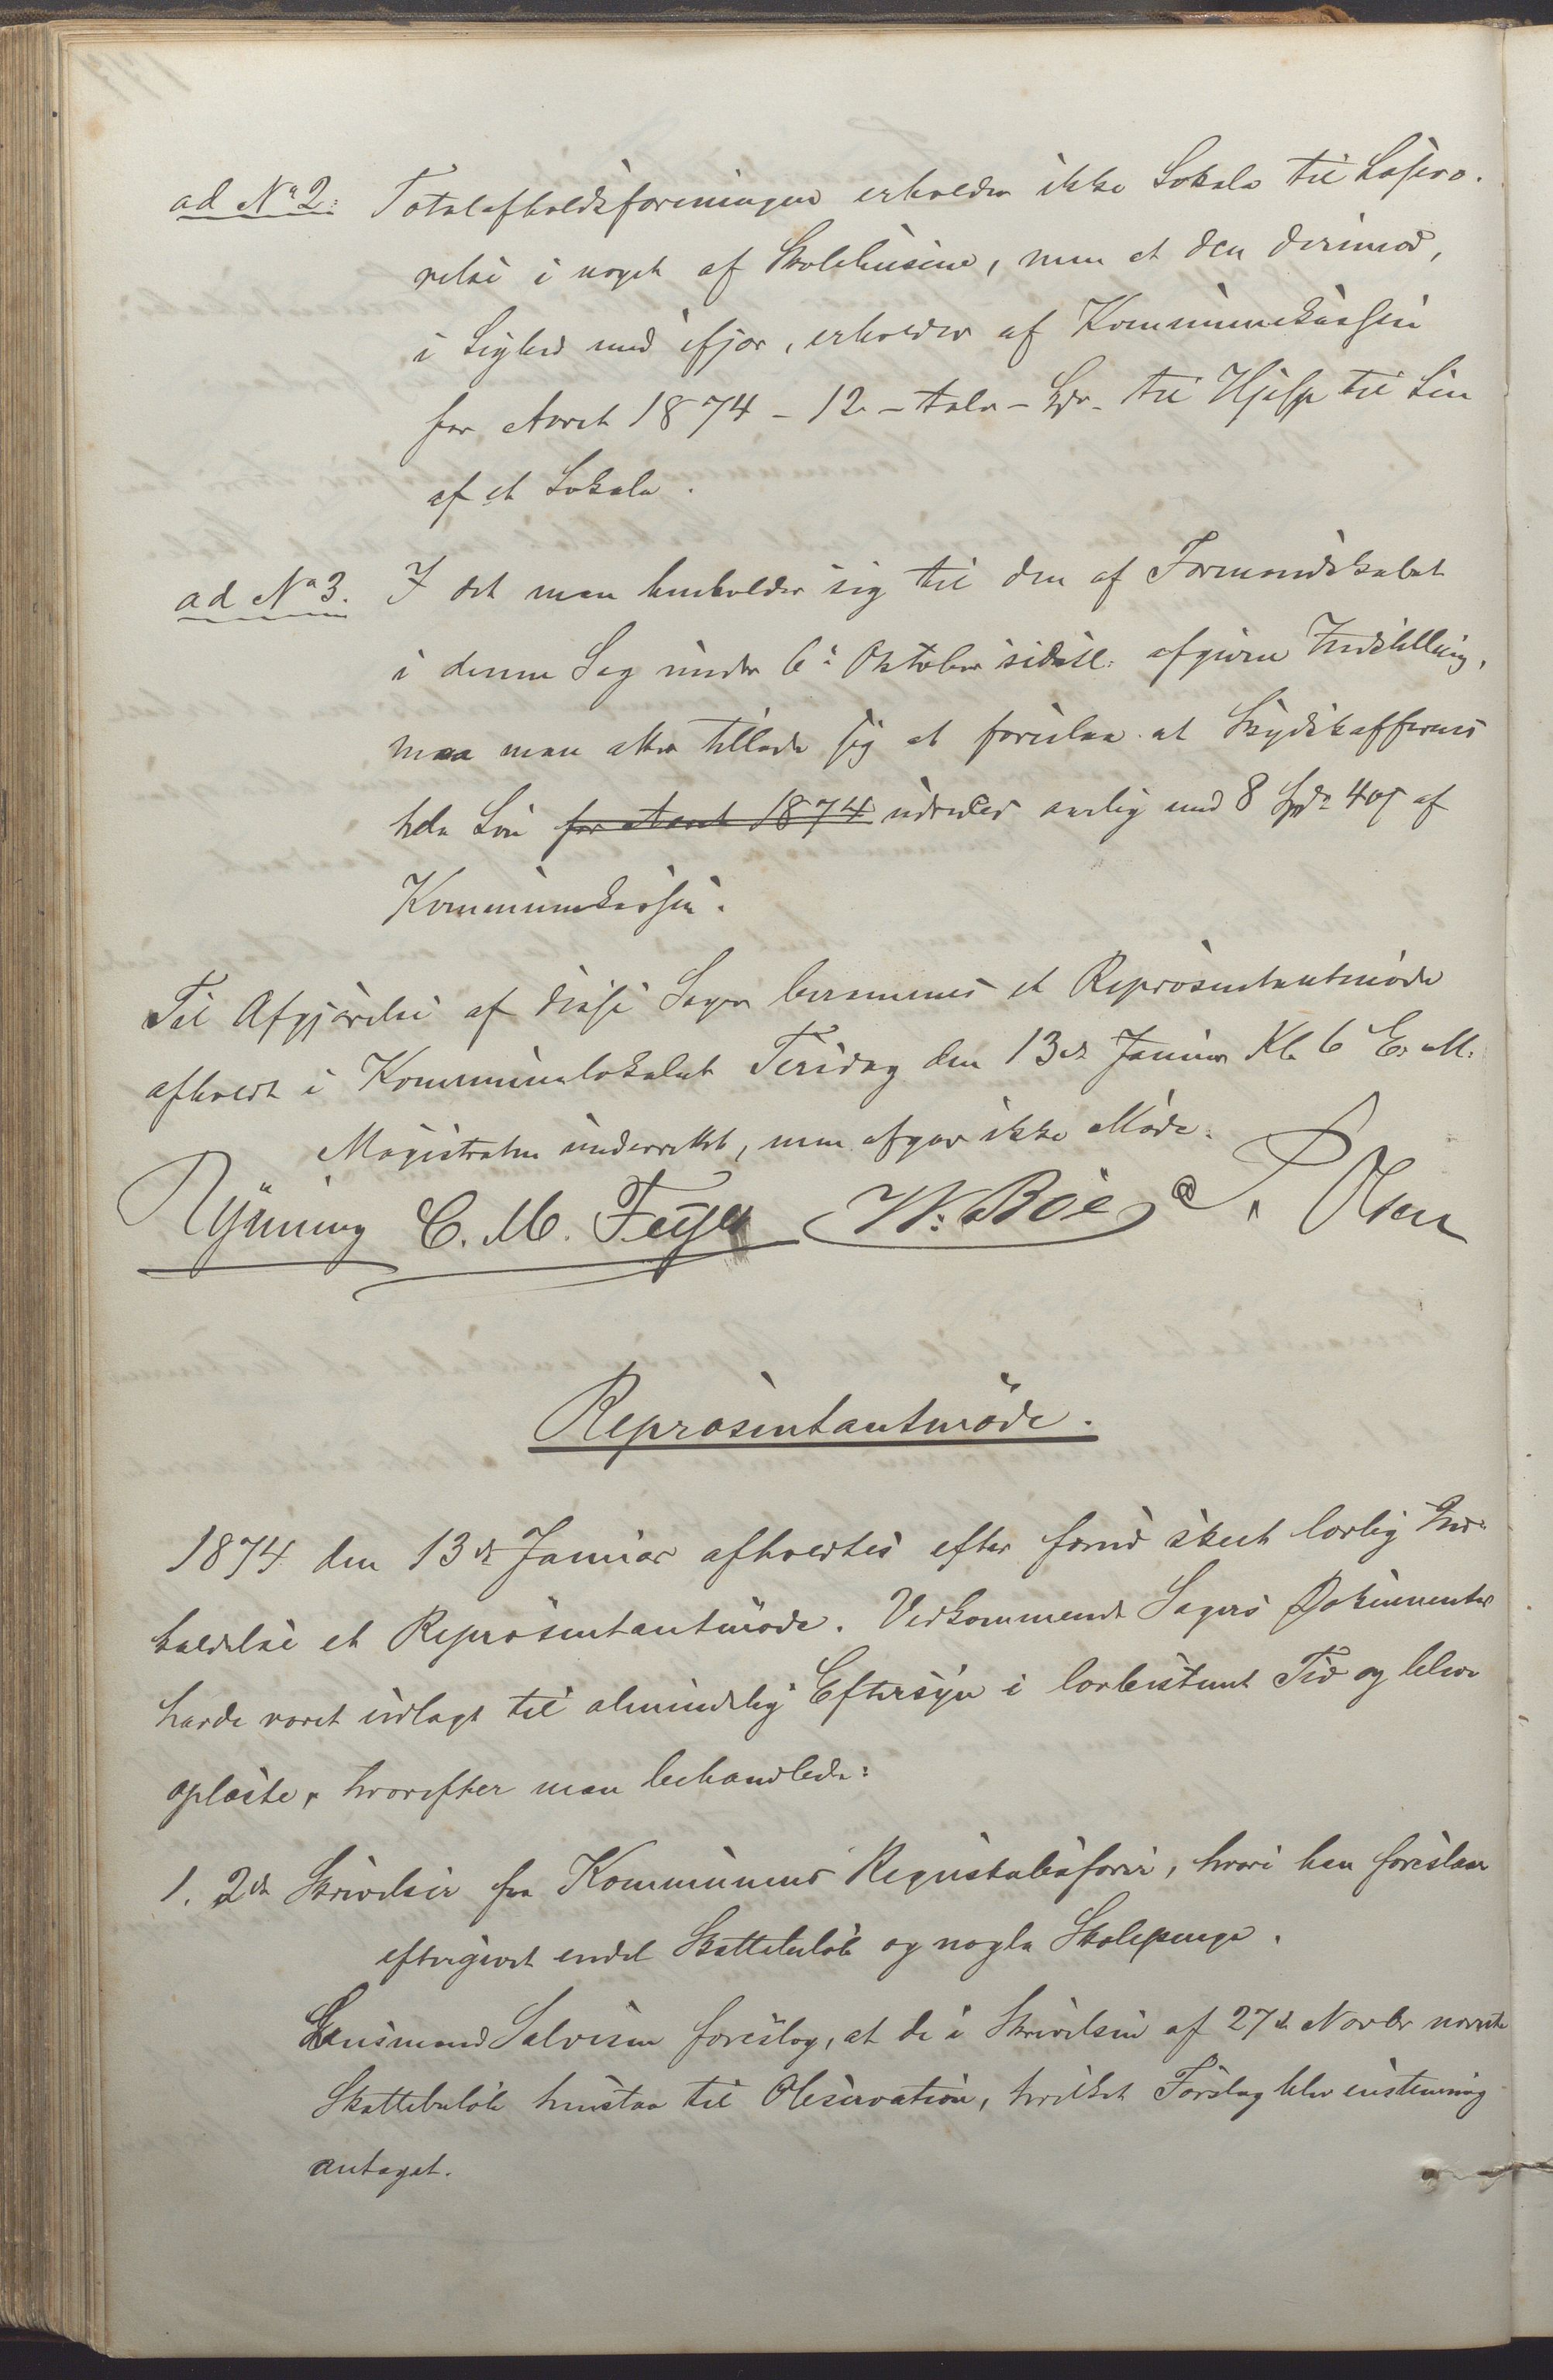 ad No 2. Totalafholdsforeningen erholder ikke Lokale til Losjero-
relse i noget af Skolehusene, men at den derimod,
i Lighed med ifjor, erholder af Kommunekassen
for Aaret 1874 - 12 - tolv - Spd. til Hjelp til Leie
af et Lokale.
ad No 3. I det man henholder sig til den af Formandskabet
i denne Sag under 6te Oktober sidstl. afgivne Indstilling,
maa man atter tillade sig at foreslaa at Skydsskafferens
hele Løn for Aaret 1874 udredes aarlig med 8 Spd. 40 s af
Kommunekassen.
Til Afgjørelse af disse Sager berammes et Repræsentantmøde
afholdt i Kommunelokalet Tirsdag den 13de Januar Kl. 6 E. M.
Magistraten underrettet, men afgav ikke Møde.
Rynning C. M. Feyer W. Bøe P. Olsen
Repræsentantmøde.
1874 den 13de Januar afholdtes efter forud skeet lovlig Ind-
kaldelse et Repræsentantmøde. Vedkommende Sagers Dokumenter
havde været udlagt til almindelig Eftersyn i lovbestemt Tid og bleve
oplæste, hvorefter man behandlede:
1. 2de Skrivelser fra Kommunens Regnskabsfører, hvori han foreslaar
eftergivet endel Skattebeløb og nogle Skolepenge.
Lensmand Salvesen foreslog, at de i Skrivelsen af 27de Novbr nævnte
Skattebeløb henstaa til Observation, hvilket Forslag blev enstemmig
antaget.